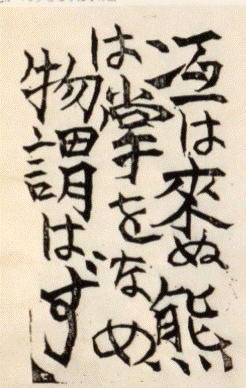 は來ぬ熊
は掌をなめ
物謂はず